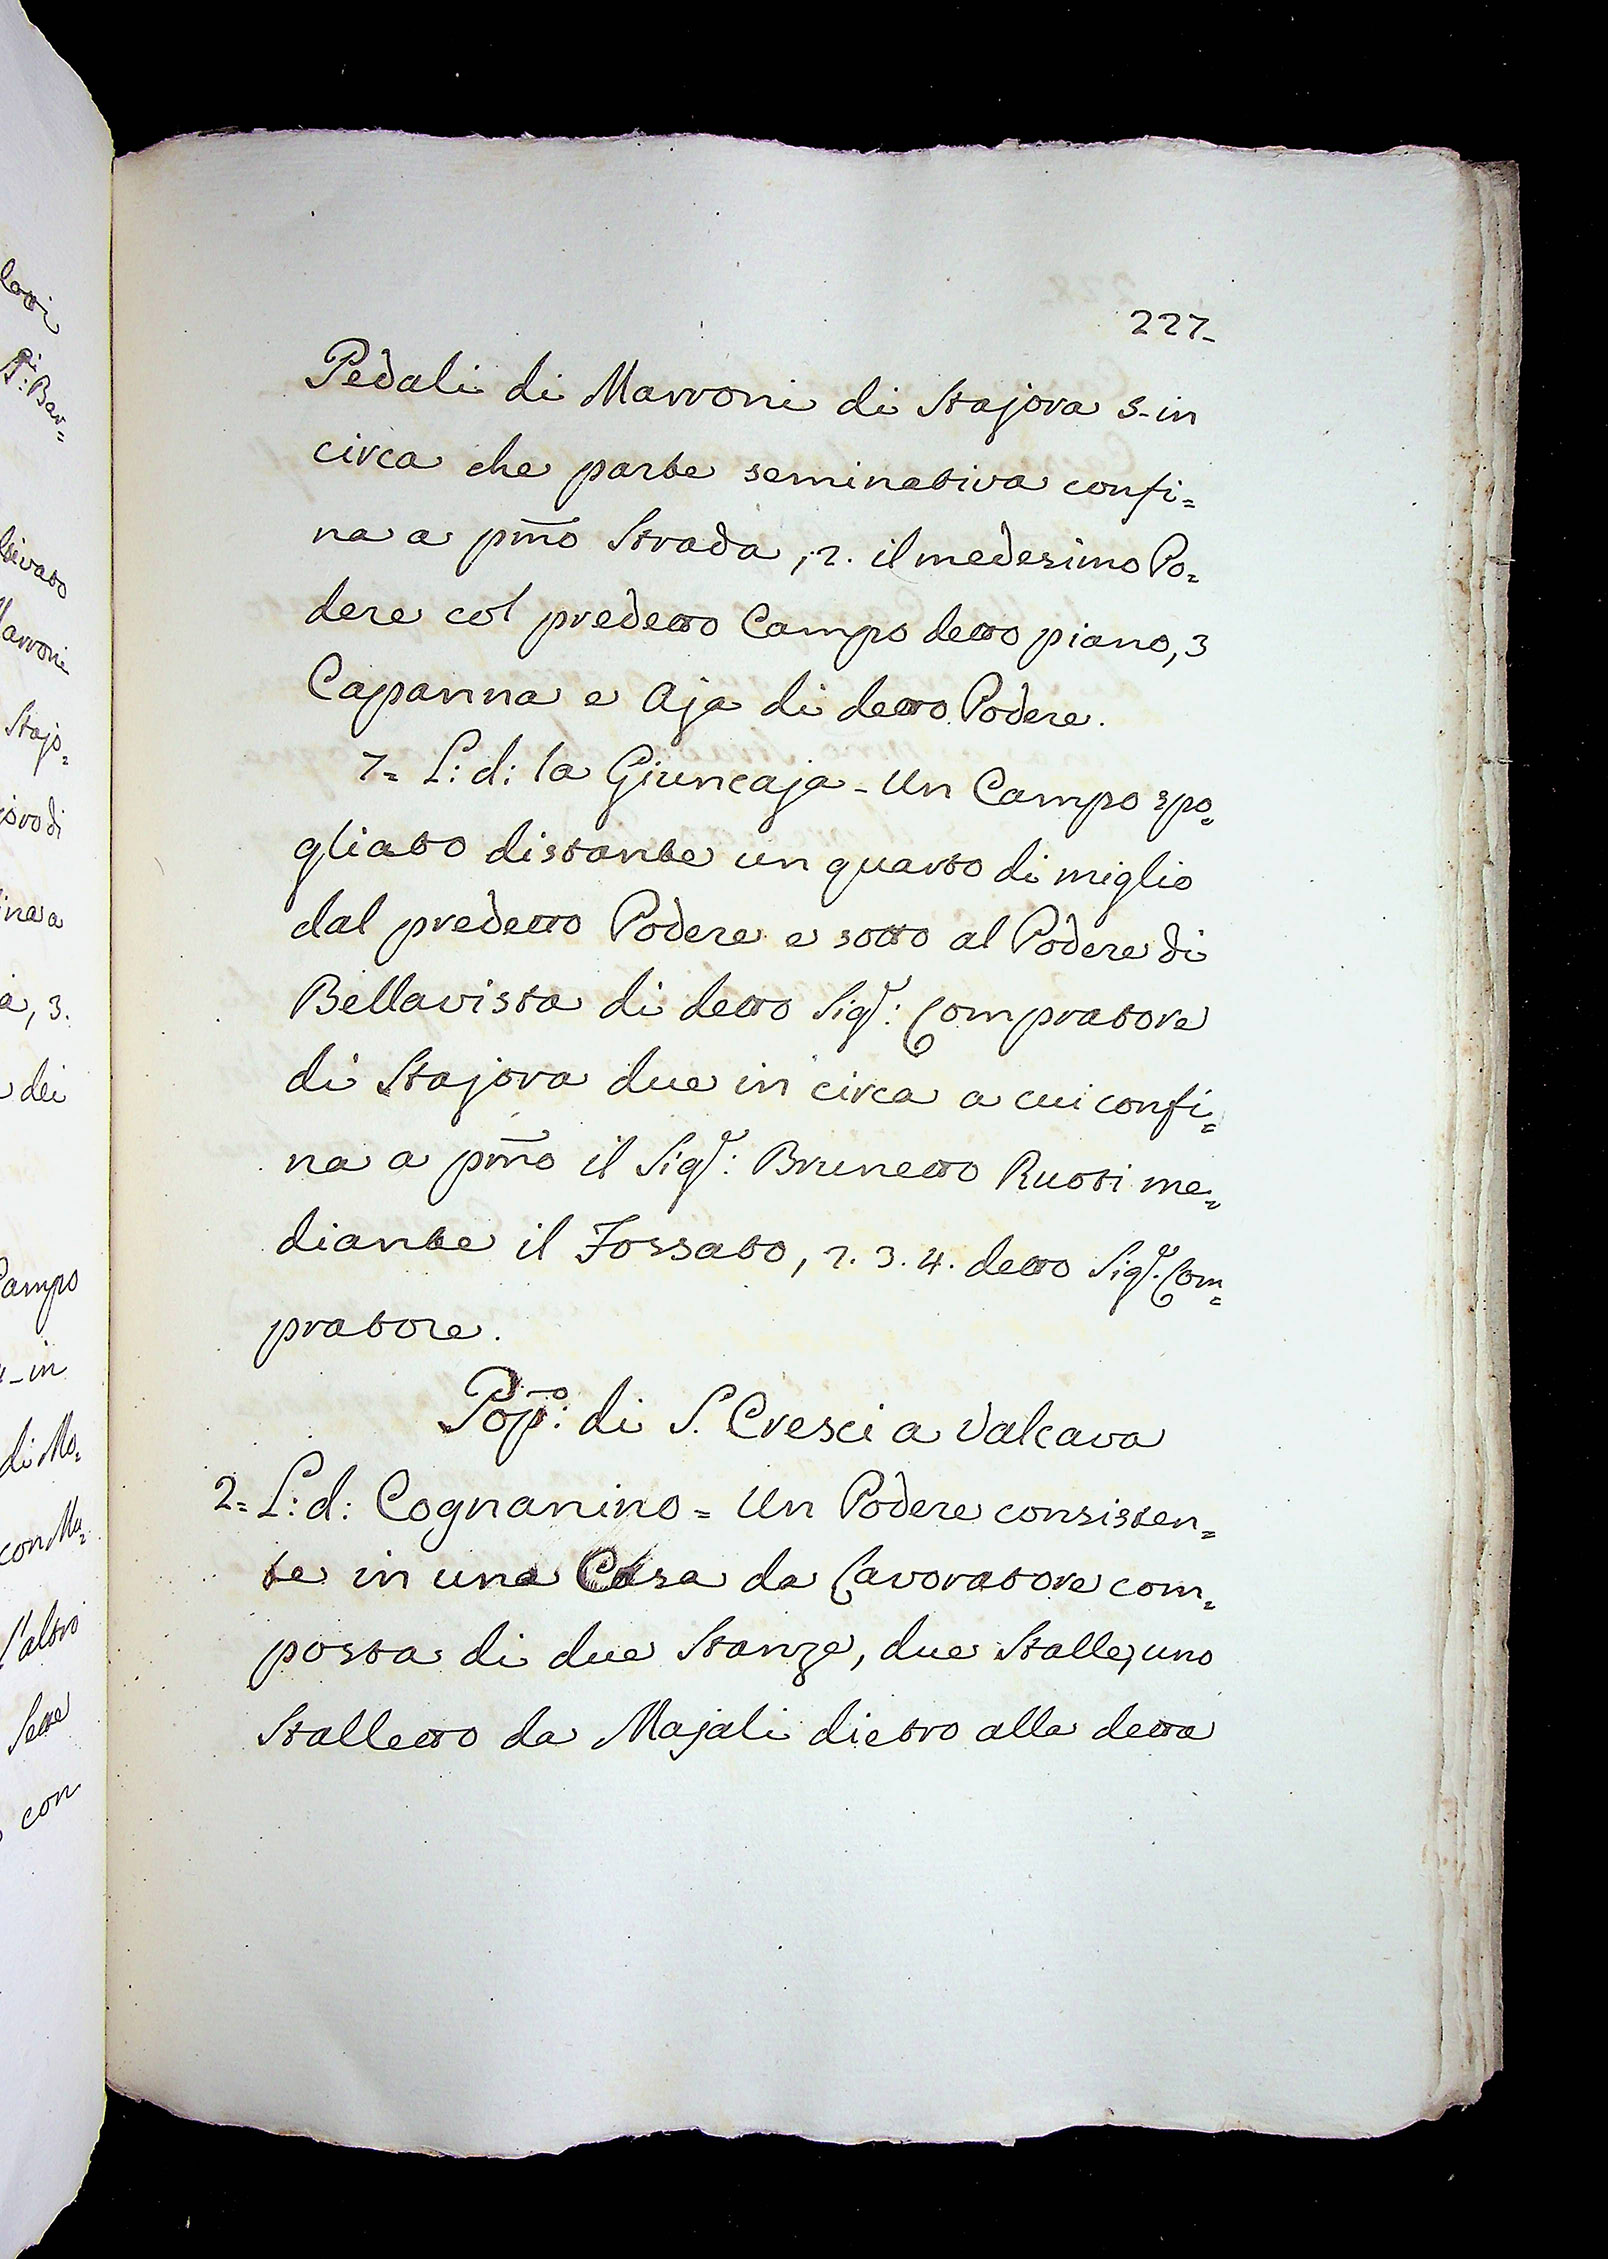 227-
Pedali di Marroni di Stajora 5-in
circa che parte seminativa confi=
na a pm̃o Strada, 2. il medesimo Po=
dere col predetto Campo detto piano, 3
Capanna e Aja di detto Podere.
7= L: d: la Giuncaja - Un Campo spo=
gliato distante un quarto di miglio
dal predetto Podere e sotto al Podere di
Bellavista di detto Sigr: Compratore
di Stajora due in circa a cui confi=
na a pm̃o il Sigr: Brunetto Ruoti me=
diante il Fossato, 2. 3. 4. detto Sigr. Com=
pratore.
Popo: di S. Cresci a Valcava
2= L: d: Cognanino = Un Podere consisten=
te in una Casa da Lavoratore com=
posta di due Stanze, due Stalle, uno
Stalletto da Majali dietro alla detta
Marroni
Stajo=
Campo
di Mo=
L'altro
Sette
con